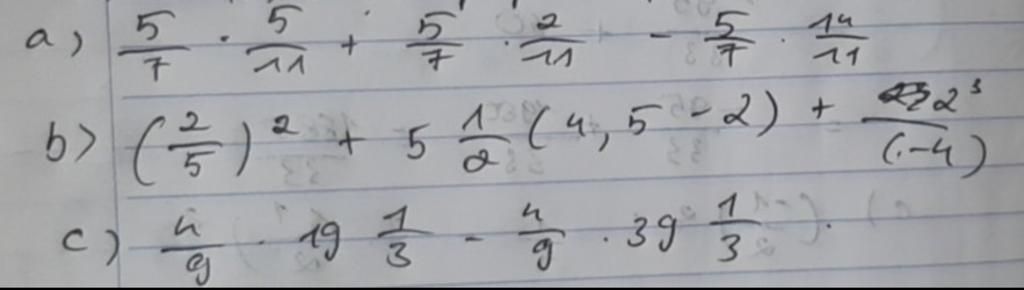 a) 5/7 · 5/11 + 5/7 · 2/11 - 5/7 · 14/11
b) (2/5)² + 5 1/2 (4,5 - 2) + 2³/(-4)
c) 4/9 · 19 1/3 - 4/9 · 39 1/3.